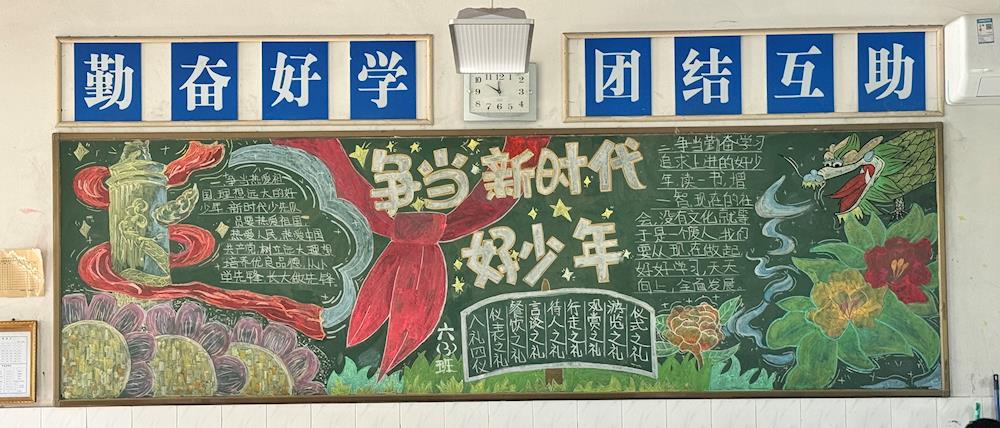 勤奋好学
团结互助
争当新时代
好少年
争当热爱祖
国、理想远大的好
少年,新时代少先队
员要热爱祖国,
热爱人民,热爱中国
共产党,树立远大理想
培养优良品德,从小
学先锋,长大做先锋
争当勤奋学习
追求上进的好少
年,读一书,增
一智,现在的社
会,没有文化就等
于是一个废人,我们
要从现在做起,
好好学习,天天
向上,全面发展。
六(3)班
仪式之礼
游览之礼
观赏之礼
行走之礼
待人之礼
言谈之礼
餐饮之礼
仪表之礼
入礼四仪